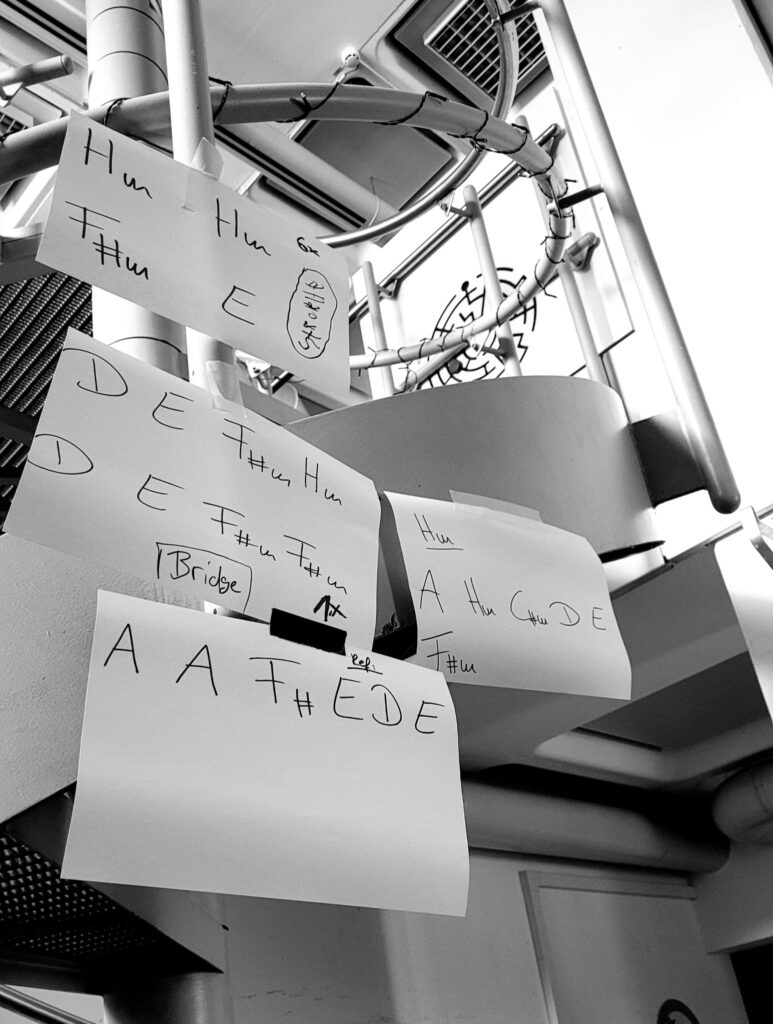 Hm Hm 6x
F#m E STROPHE
D E F#m Hm
D E F#m F#m
Bridge 1x
Hm
A Hm C#m D E
F#m
Ref:
A A F# E D E